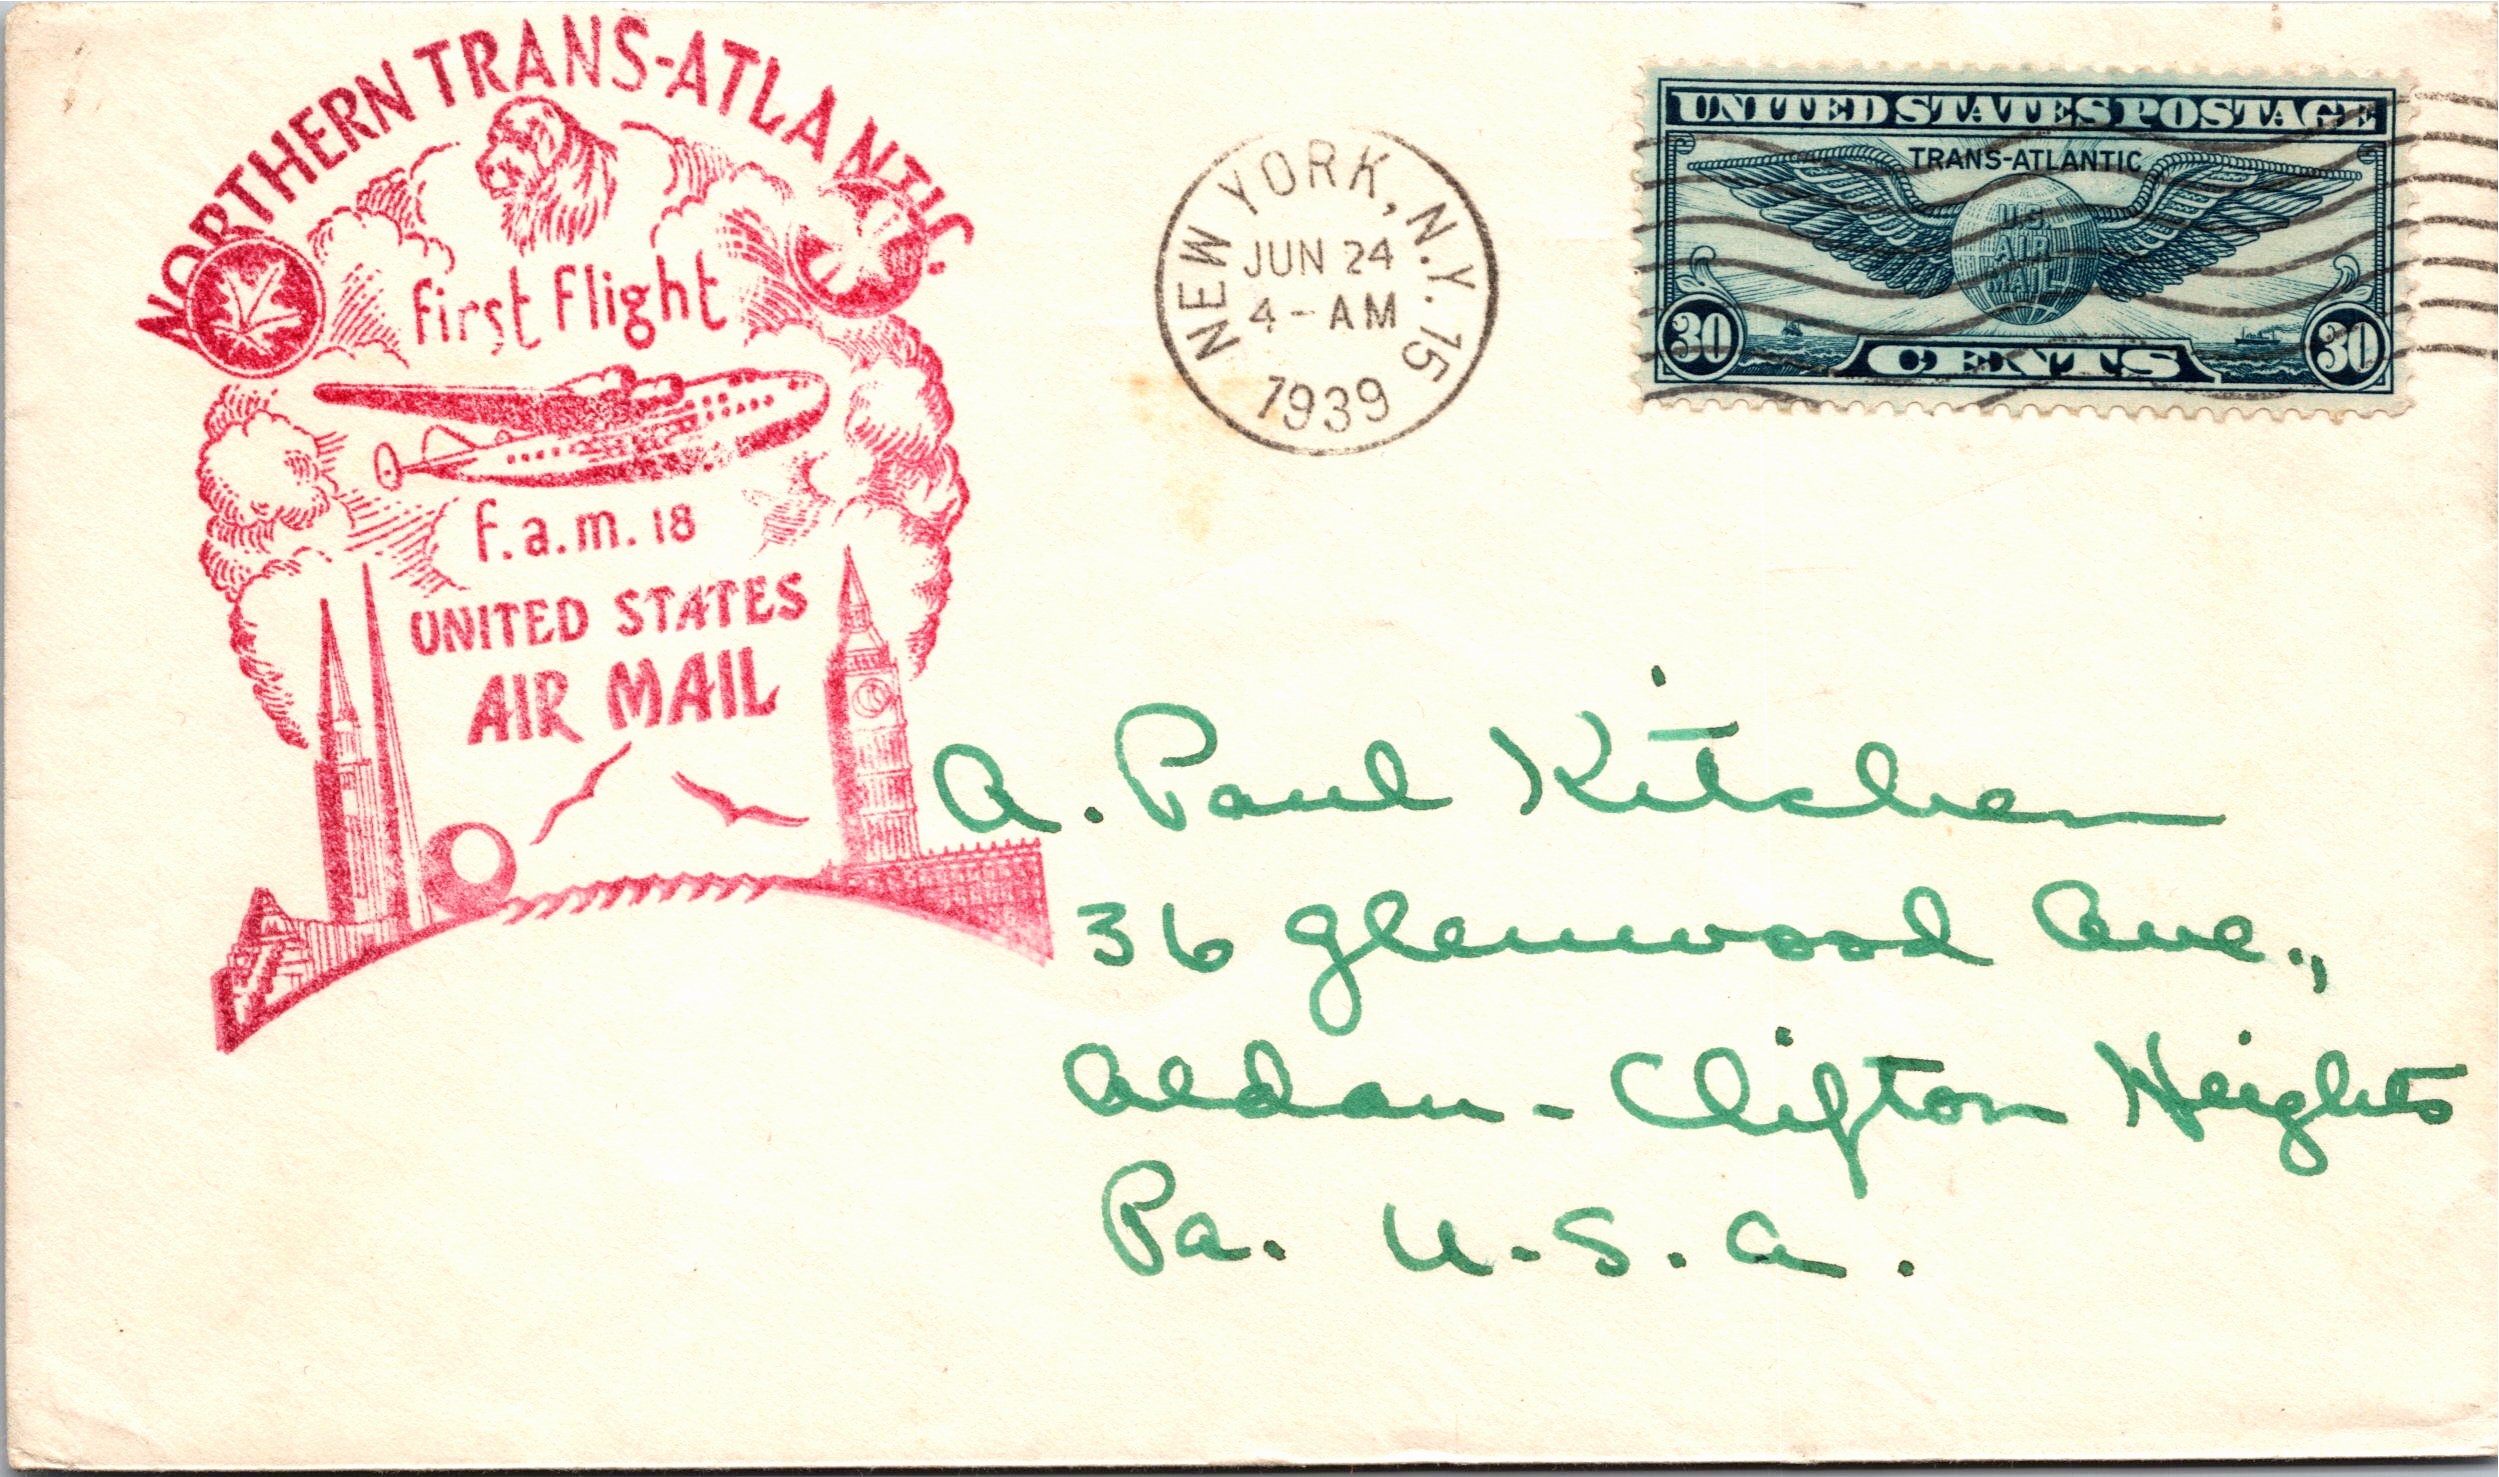 NORTHERN TRANS-ATLANTIC
first flight
f.a.m. 18
UNITED STATES
AIR MAIL
NEW YORK, N.Y. 15
JUN 24
4-AM
1939
UNITED STATES POSTAGE
TRANS-ATLANTIC
U.S.
AIR
MAIL
30 CENTS 30
A. Paul Kitchen
36 Glenwood Ave.,
Aldan - Clifton Heights
Pa. U.S.A.